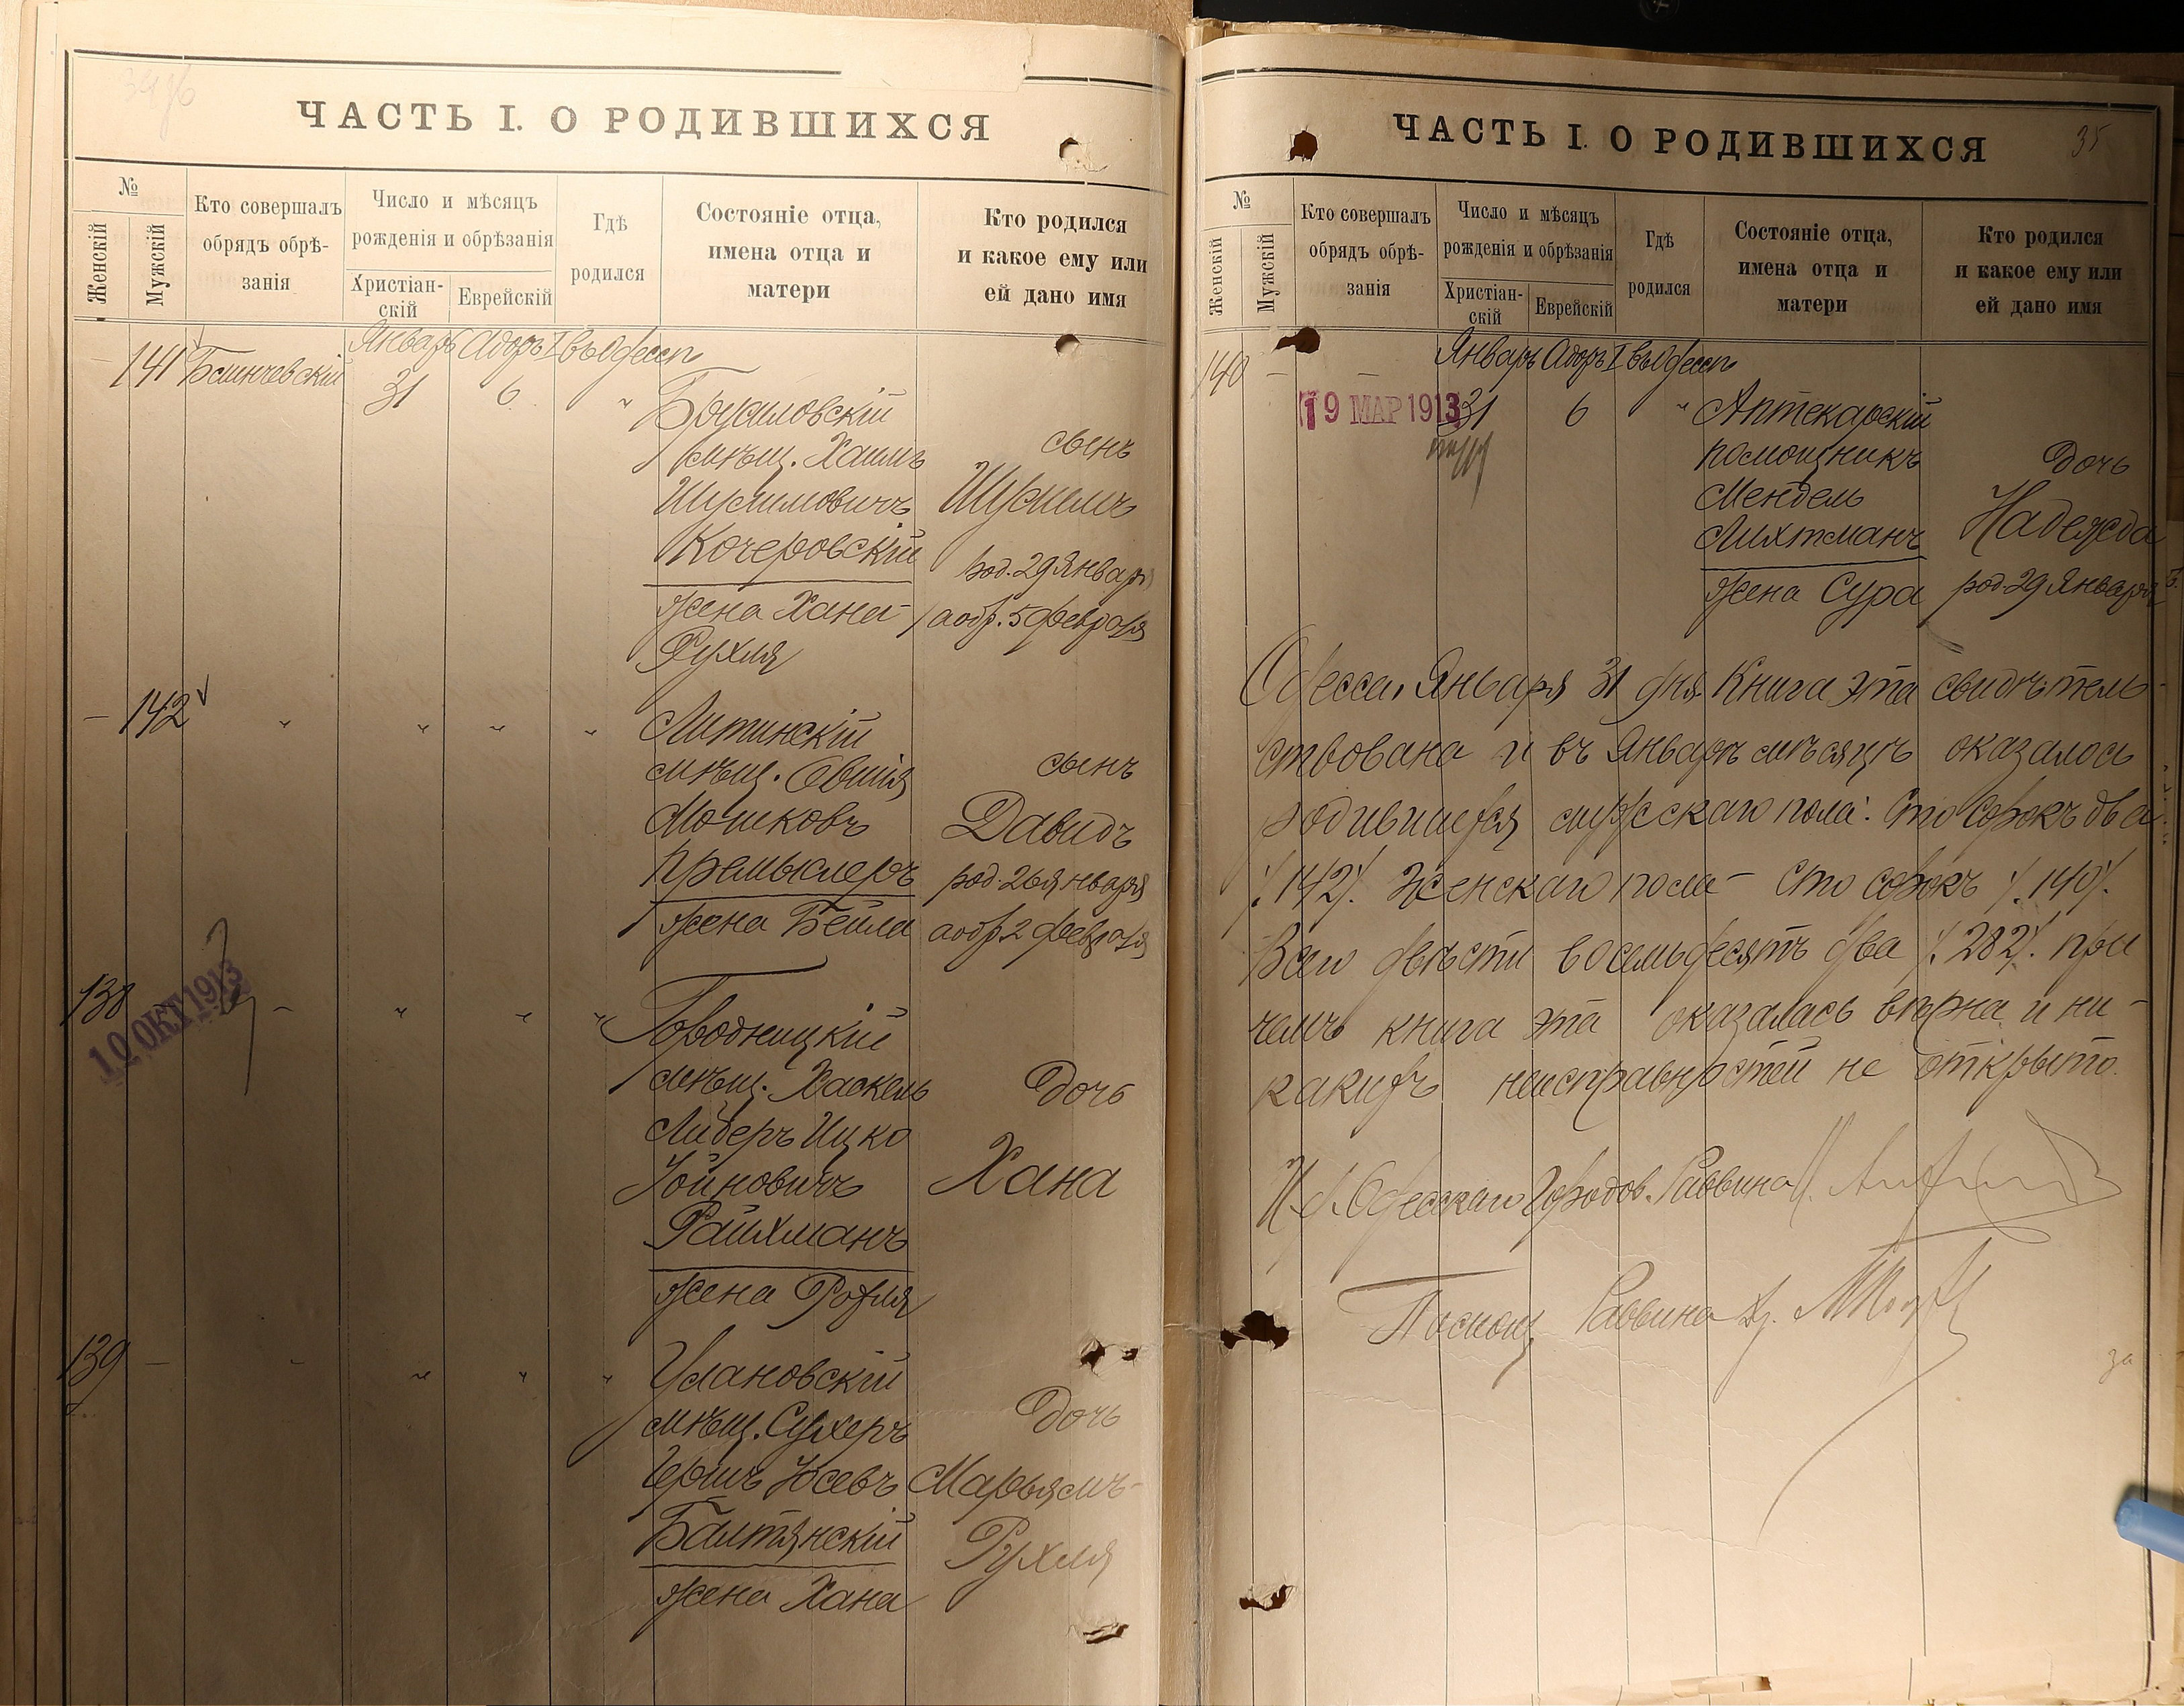 ЧАСТЬ I. О РОДИВШИХСЯ
№
Женскій
Мужскій
Кто совершалъ
обрядъ обрѣ-
занія
Число и мѣсяцъ
рожденія и обрѣзанія
Христіан-
скій
Еврейскій
Гдѣ
родился
Состояніе отца,
имена отца и
матери
Кто родился
и какое ему или
ей дано имя
Январь Адоръ I въ Одессѣ
– 141
31 6 "
Брусиловскій
мѣщ. Хаимъ
Шулимовичъ
Кочеровскій
жена Хана-
Рухля
сынъ
Шулимъ
род. 29 Января
а обр. 5 февраля
– 142 " " " "
Литинскій
мѣщ. Овшія
Мошковъ
Премыслеръ
жена Бейла
сынъ
Давидъ
род. 26 января
а обр 2 февраля
138 – – " " "
10 ОКТ 1913
Городницкій
мѣщ. Хаскель
Либеръ Ицко
Іойновичъ
Райхманъ
жена Рохля
дочь
Хана
139 – - " " "
Улановскій
мѣщ. Сухеръ
Гершъ Іосевъ
Балтянскій
жена Хана
дочь
Марьямъ-
Рухля
ЧАСТЬ I. О РОДИВШИХСЯ
35
№
Женскій
Мужскій
Кто совершалъ
обрядъ обрѣ-
занія
Число и мѣсяцъ
рожденія и обрѣзанія
Христіан-
скій
Еврейскій
Гдѣ
родился
Состояніе отца,
имена отца и
матери
Кто родился
и какое ему или
ей дано имя
Январь Адоръ I въ Одессѣ
140 – –
19 МАР 1913
31 6 "
Аптекарскій
помощникъ
Мендель
Лихтманъ
жена Сура
дочь
Надежда
род. 29 Января
Одесса, Января 31 дня. Книга эта свидѣтель-
ствована и въ Январѣ мѣсяцѣ оказалось
родившихся мужскаго пола: Сто сорокъ два
/.142/. Женскаго пола – Сто сорокъ /.140/.
Всего двѣсти восемьдесятъ два /.282/. при
чемъ книга эта оказалась вѣрна и ни-
какихъ неисправностей не открыто.
И. д. Одесскаго Городов. Раввина
Помощ. Раввина